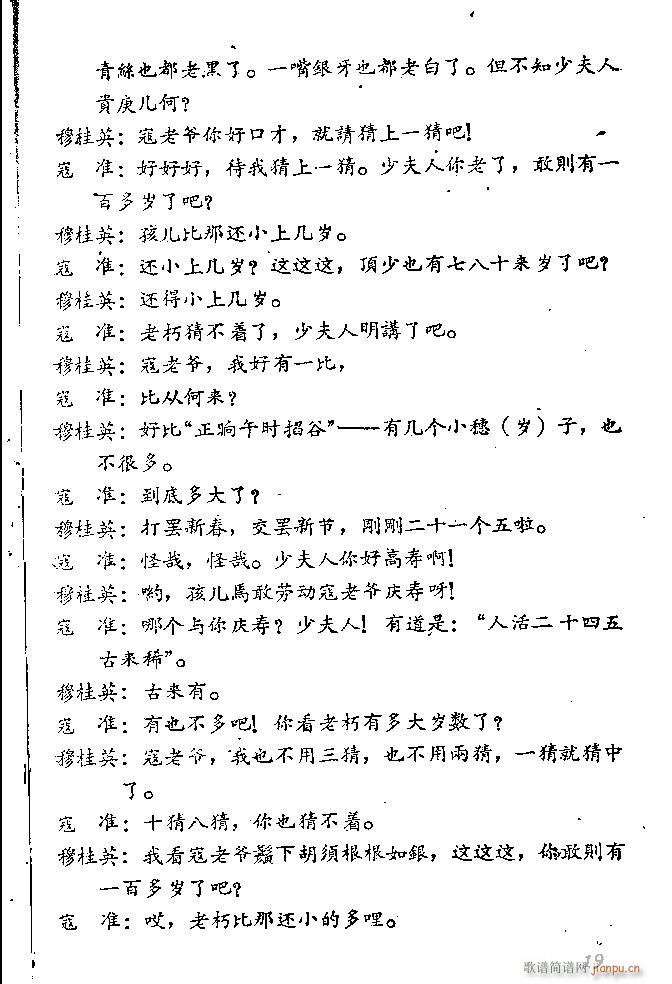 青絲也都老黑了。一嘴銀牙也都老白了。但不知少夫人
貴庚几何？
穆桂英：寇老爷你好口才，就請猜上一猜吧！
寇　准：好好好，待我猜上一猜。少夫人你老了，敢則有一
百多岁了吧？
穆桂英：孩儿比那还小上几岁。
寇　准：还小上几岁？这这这，頂少也有七八十来岁了吧？
穆桂英：还得小上几岁。
寇　准：老朽猜不着了，少夫人明講了吧。
穆桂英：寇老爷，我好有一比，
寇　准：比从何来？
穆桂英：好比“正晌午时掐谷”——有几个小穗（岁）子，也
不很多。
寇　准：到底多大了？
穆桂英：打罢新春，交罢新节，剛剛二十一个五啦。
寇　准：怪哉，怪哉。少夫人你好高寿啊！
穆桂英：哟，孩儿馬敢劳动寇老爷庆寿呀！
寇　准：哪个与你庆寿？少夫人！有道是：“人活二十四五
古来稀”。
穆桂英：古来有。
寇　准：有也不多吧！你看老朽有多大岁数了？
穆桂英：寇老爷，我也不用三猜，也不用兩猜，一猜就猜中
了。
寇　准：十猜八猜，你也猜不着。
穆桂英：我看寇老爷鬚下胡须根根如銀，这这这，你敢則有
一百多岁了吧？
寇　准：哎，老朽比那还小的多哩。
19
歌谱简谱网
jianpu.cn